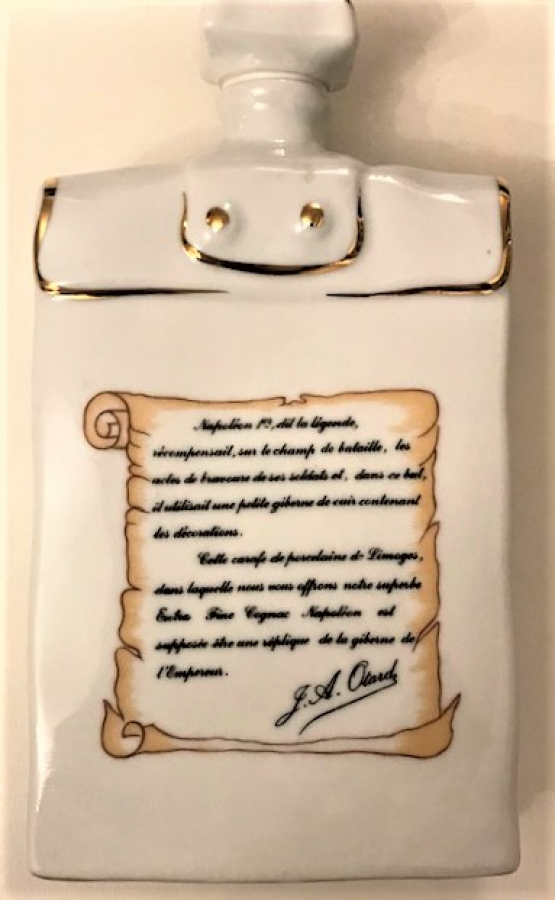 Napoléon 1er, dit la légende,
récompensait, sur le champ de bataille, les
actes de bravoure de ses soldats et, dans ce but,
il utilisait une petite giberne de cuir contenant
les décorations.
Cette carafe de porcelaine de Limoges,
dans laquelle nous vous offrons notre superbe
Extra Fine Cognac Napoléon est
supposée être une réplique de la giberne de
l'Empereur.
J. A. Otard